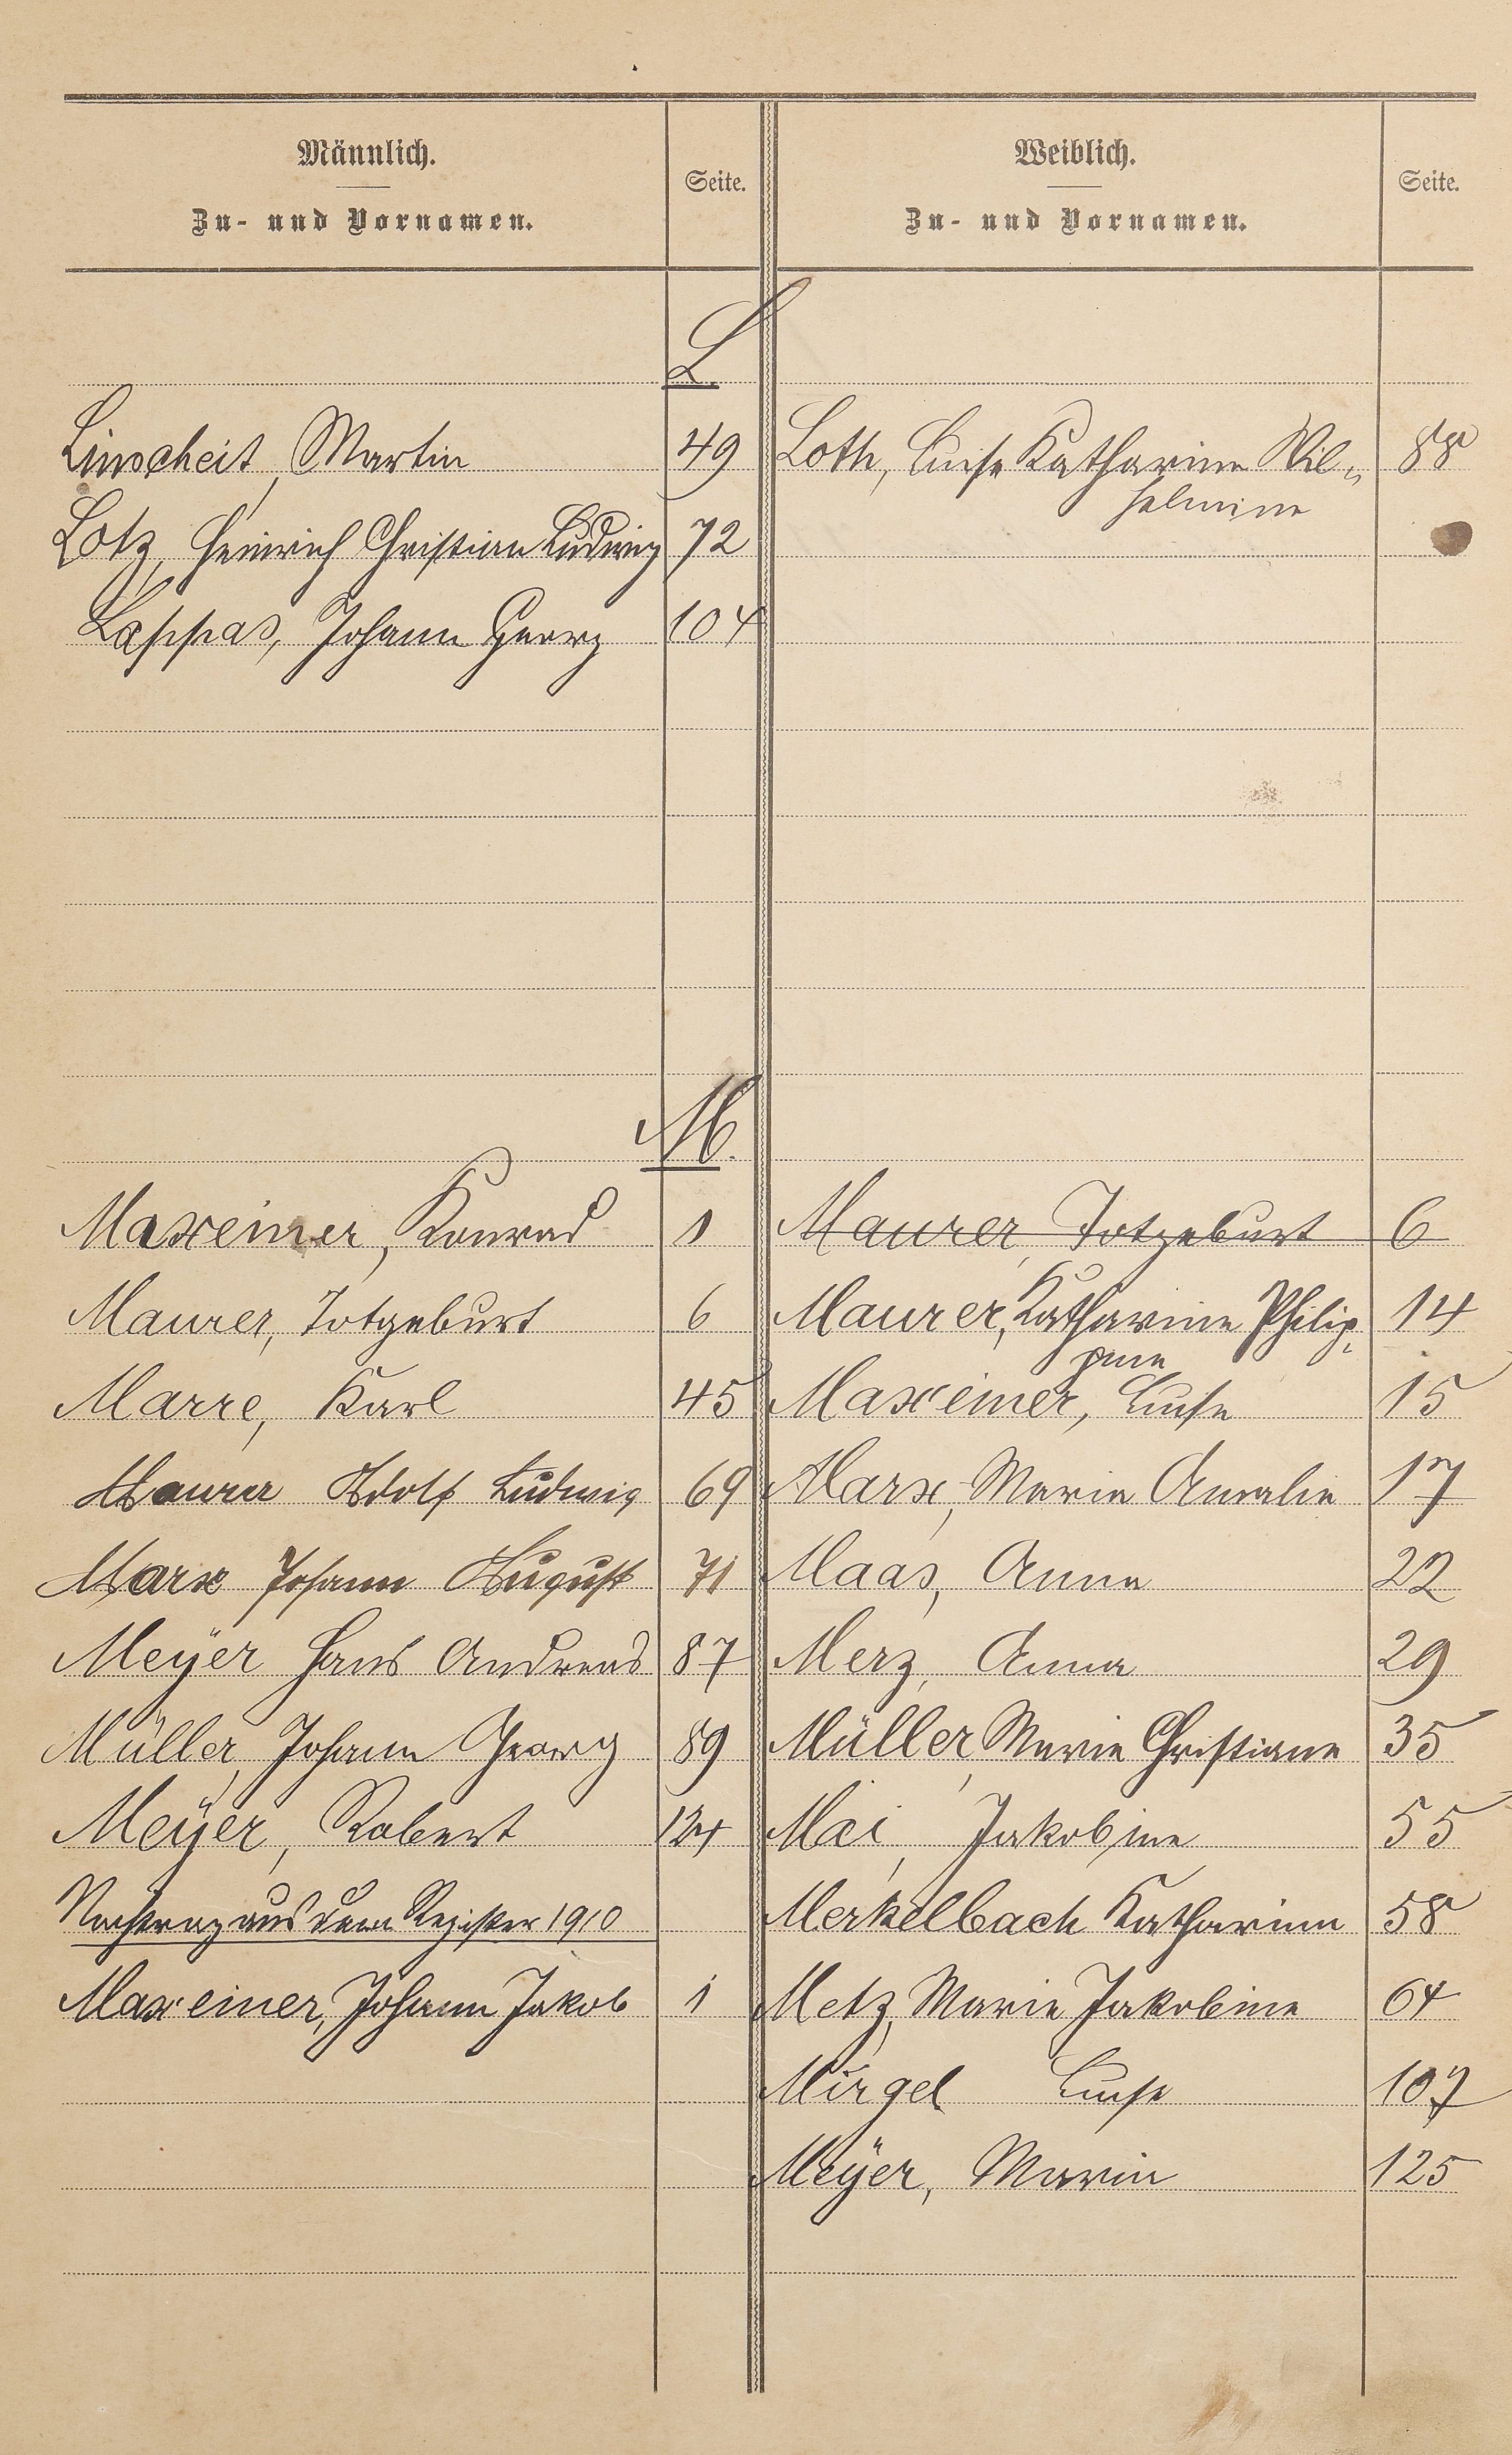 Männlich.
Zu- und Vornamen.
Seite.
Weiblich.
Zu- und Vornamen.
Seite.
L.
Linscheit, Martin 49
Loth, Luise Katharine Wil= 88
helmine
Lotz, Heinrich Christian Ludwig 72
Lappas, Johann Georg 104
M.
Maxeiner, Konrad 1
Maurer, Totgeburt 6
Maurer, Totgeburt 6
Maurer, Katharine Philip= 14
pine
Marre, Karl 45
Maxeiner, Luise 15
Maurer Adolf Ludwig 69
Marx, Marie Amalie 17
Marx Johann August 71
Maas, Anna 22
Meÿer Hans Andreas 87
Merz, Anna 29
Müller, Johann Georg 89
Müller, Marie Christiane 35
Meÿer, Robert 124
Mai, Jakobine 55
Nachtrag aus dem Register 1910
Merkelbach Katharina 58
Maxeiner, Johann Jakob 1
Metz, Marie Jakobine 64
Mirgel Luise 107
Meÿer, Maria 125